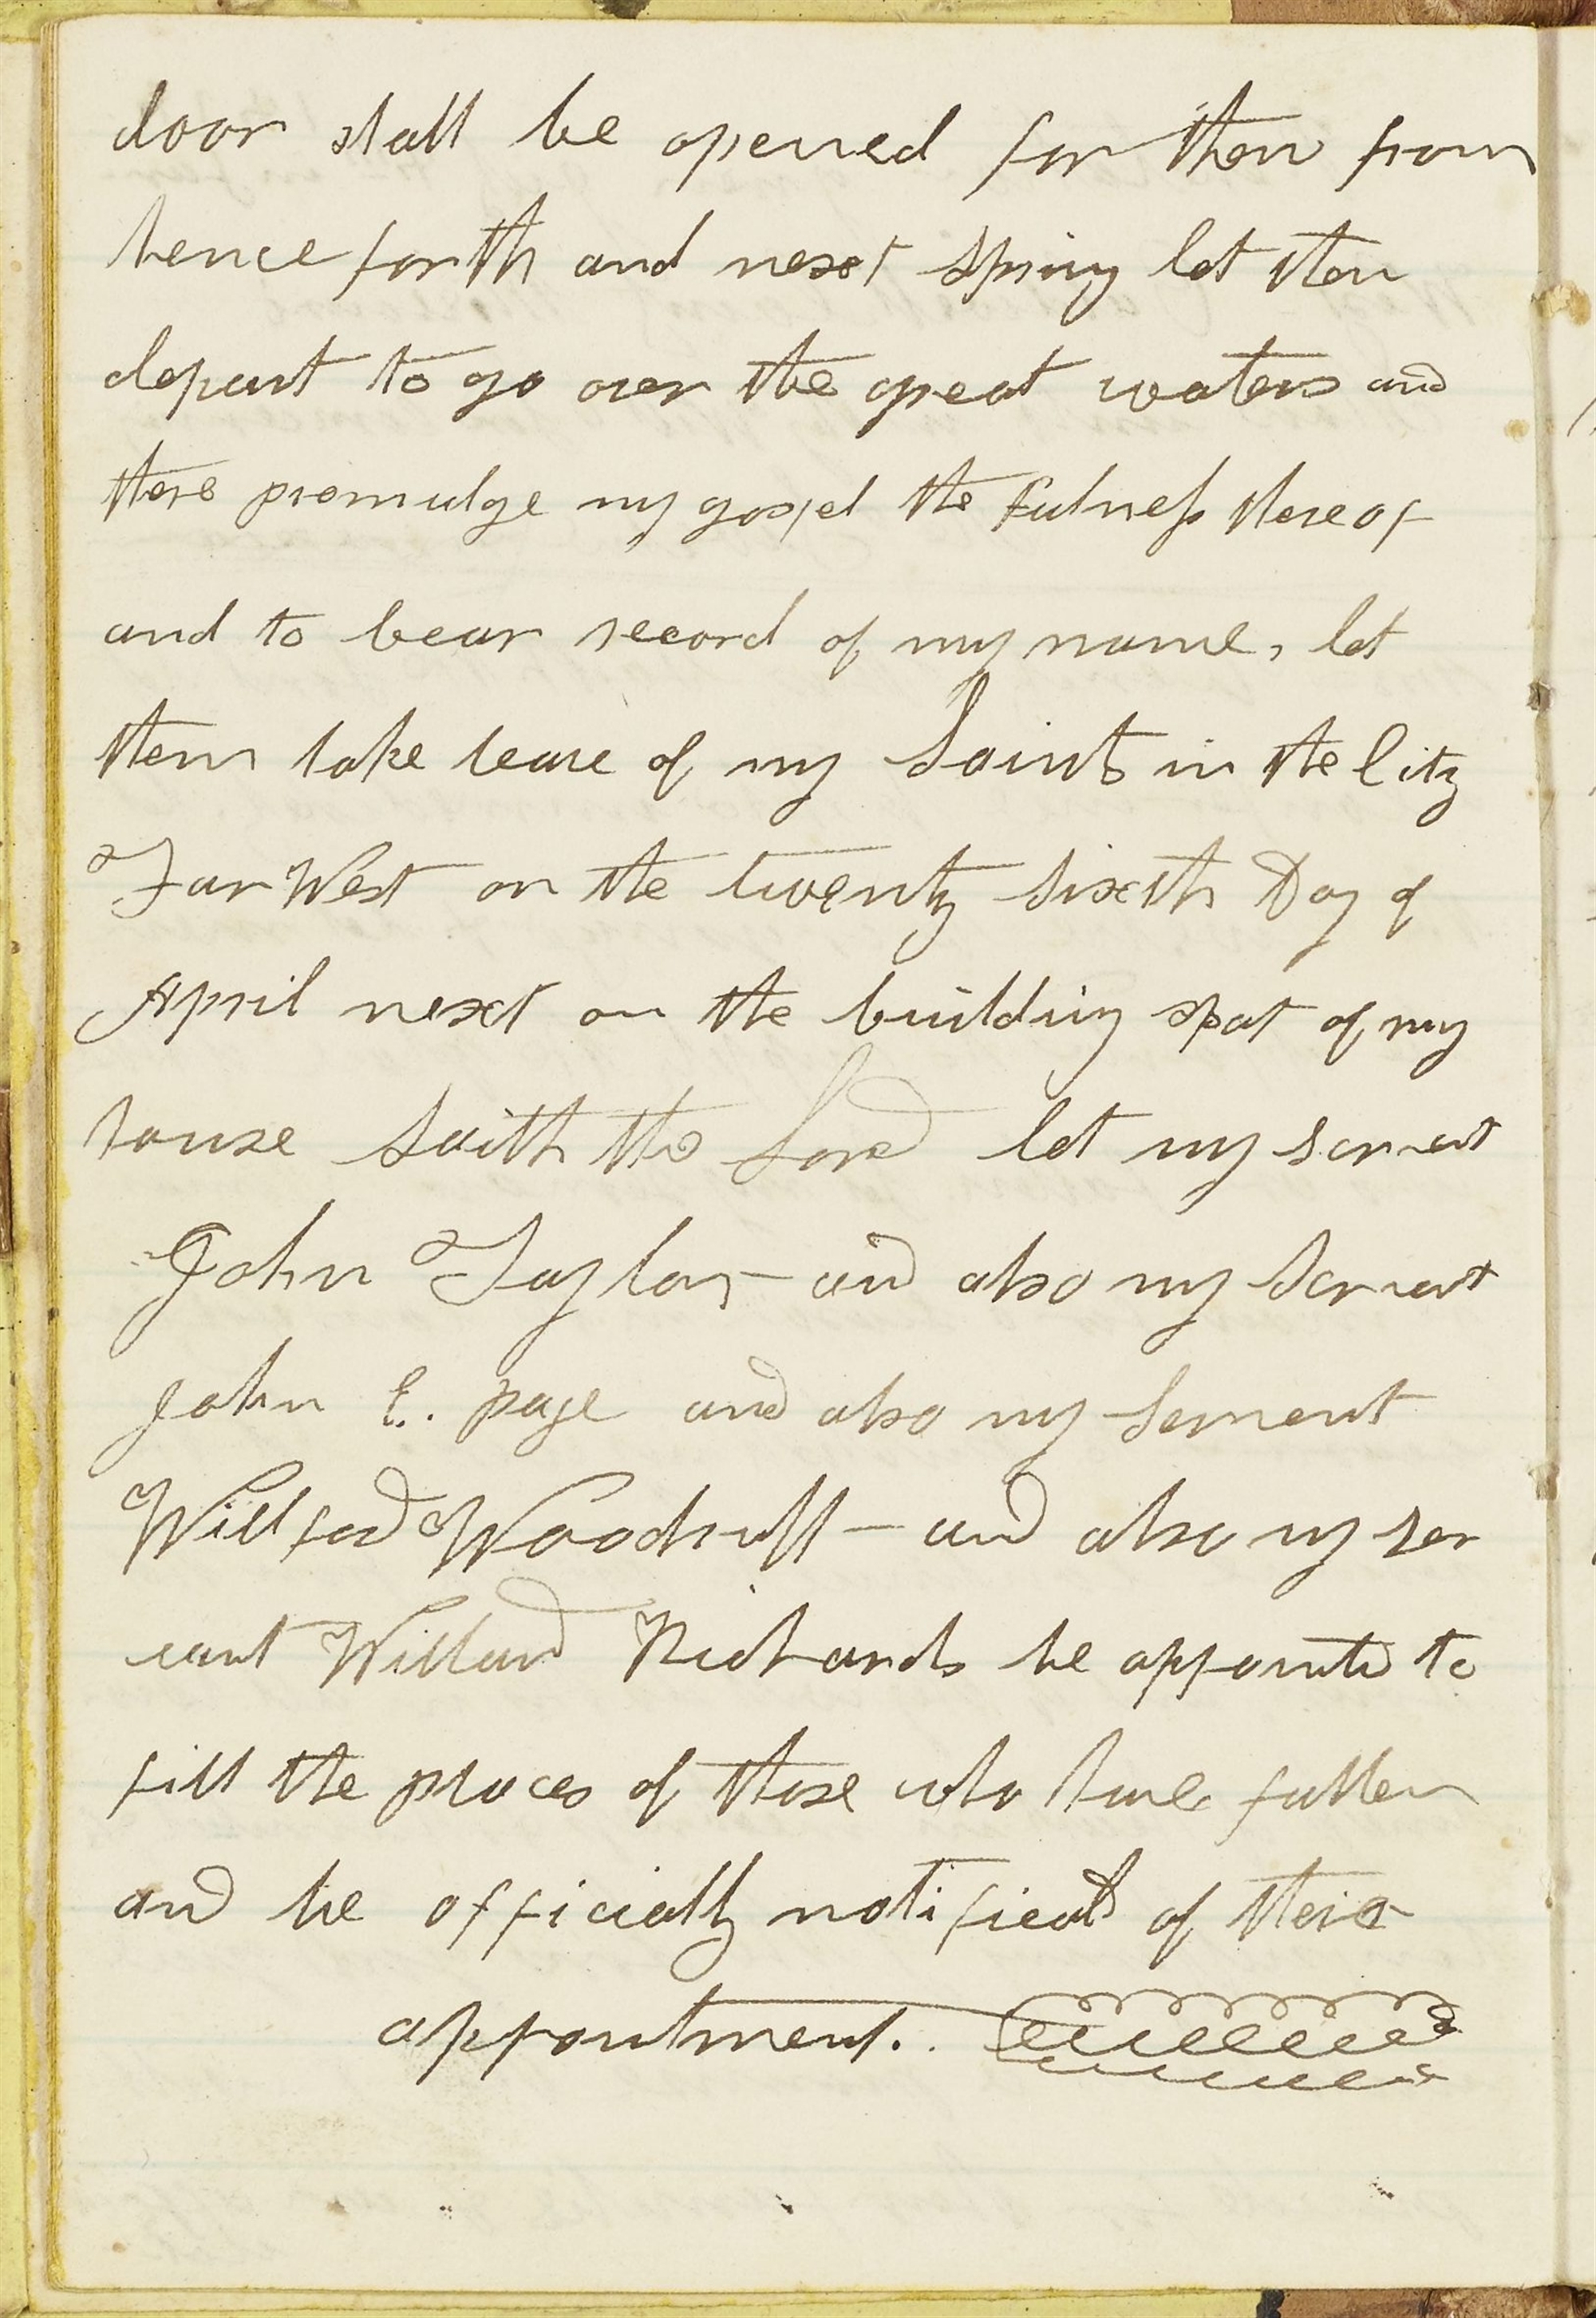 door shall be opened for them from
hence forth and next spring let them
depart to go over the great waters and
there promulge my gospel the fulness thereof
and to bear record of my name, let
them take leave of my Saints in the City
Far West on the twenty sixth Day of
April next on the building spot of my
house Saith the Lord let my servent
John Taylor— and also my Servent
John E. page and also my Servent
Willford Woodruff— and also my ser
vant Willard Richards be appointed to
fill the places of those who have fallen
and be officially notified of their
appointment.